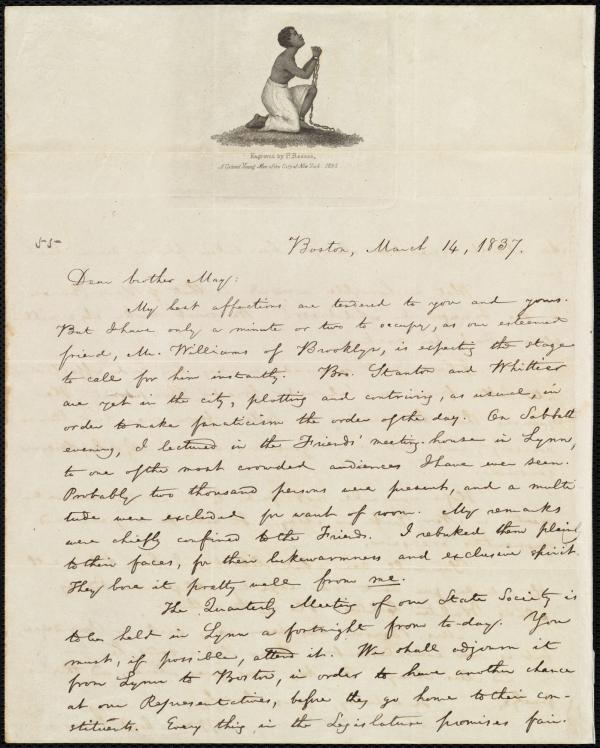 Engraved by P. Reason,
A Colored Young Man of the City of New York 1835
55
Boston, March 14, 1837.
Dear brother May:
My best affections are tendered to you and yours.
But I have only a minute or two to occupy, as our esteemed
friend, Mr. Williams of Brooklyn, is expecting the stage
to call for him instantly. Bro. Stanton and Whittier
are yet in the city, plotting and contriving, as usual, in
order to make fanaticism the order of the day. On Sabbath
evening, I lectured in the Friends' meeting-house in Lynn,
to one of the most crowded audiences I have ever seen.
Probably two thousand persons were present, and a multi
tude were excluded for want of room. My remarks
were chiefly confined to the Friends. I rebuked them plainly
to their faces, for their lukewarmness and exclusive spirit.
They bore it pretty well from me.
The Quarterly Meeting of our State Society is
to be held in Lynn a fortnight from to-day. You
must, if possible, attend it. We shall adjourn it
from Lynn to Boston, in order to have another chance
at our Representatives, before they go home to their con-
stituents. Every thing in the Legislature promises fair.